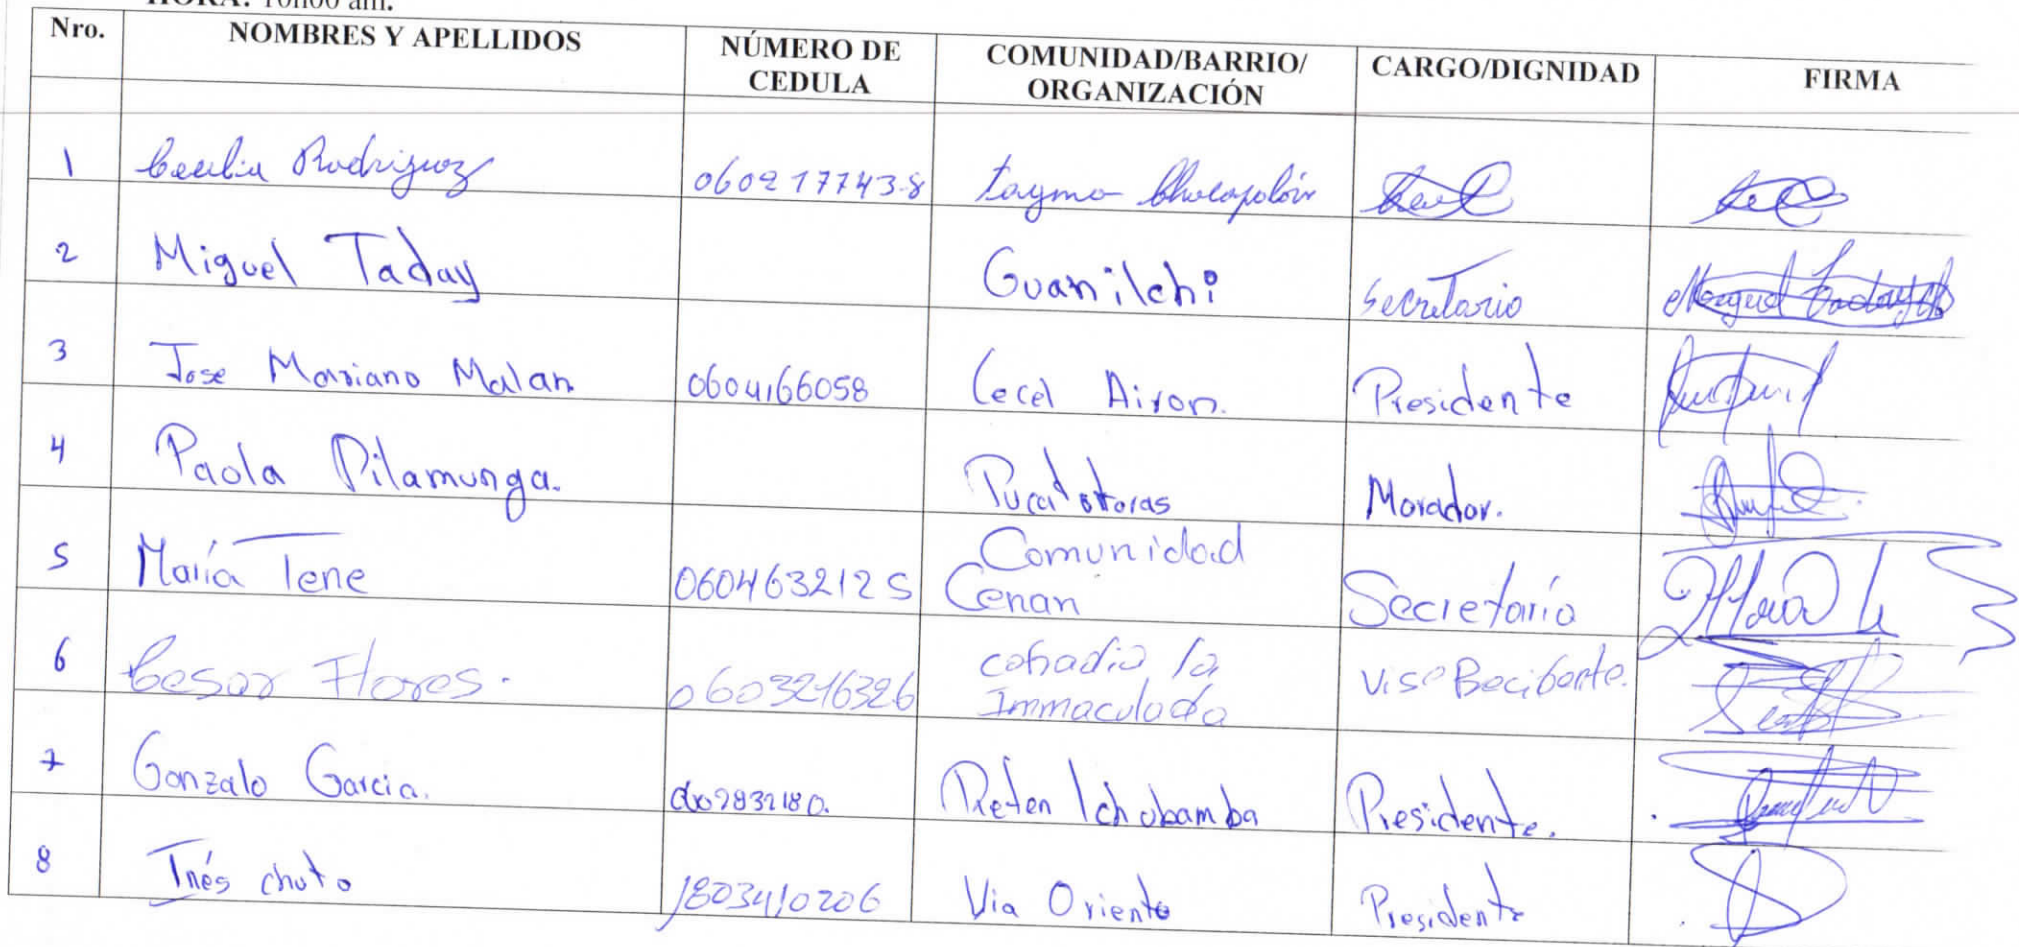 HORA: 10h00 am.
Nro. NOMBRES Y APELLIDOS NÚMERO DE CEDULA COMUNIDAD/BARRIO/ORGANIZACIÓN CARGO/DIGNIDAD FIRMA
1 Cecilia Rodriguez 060217743-8 Laymo
2 Miguel Taday Guanilchi Secretario Miguel Taday
3 Jose Mariano Malan 0604166058 Cecel Airon. Presidente
4 Paola Pilamunga. Morador.
5 María Tene 0604632125 Comunidad Cenan Secretaria
6 Cesar Flores. 0603216326 cofradia la Immaculada
7 Gonzalo Garcia. Reten Ichubamba Presidente.
8 Inés chuto 1803410206 Via Oriente Presidente